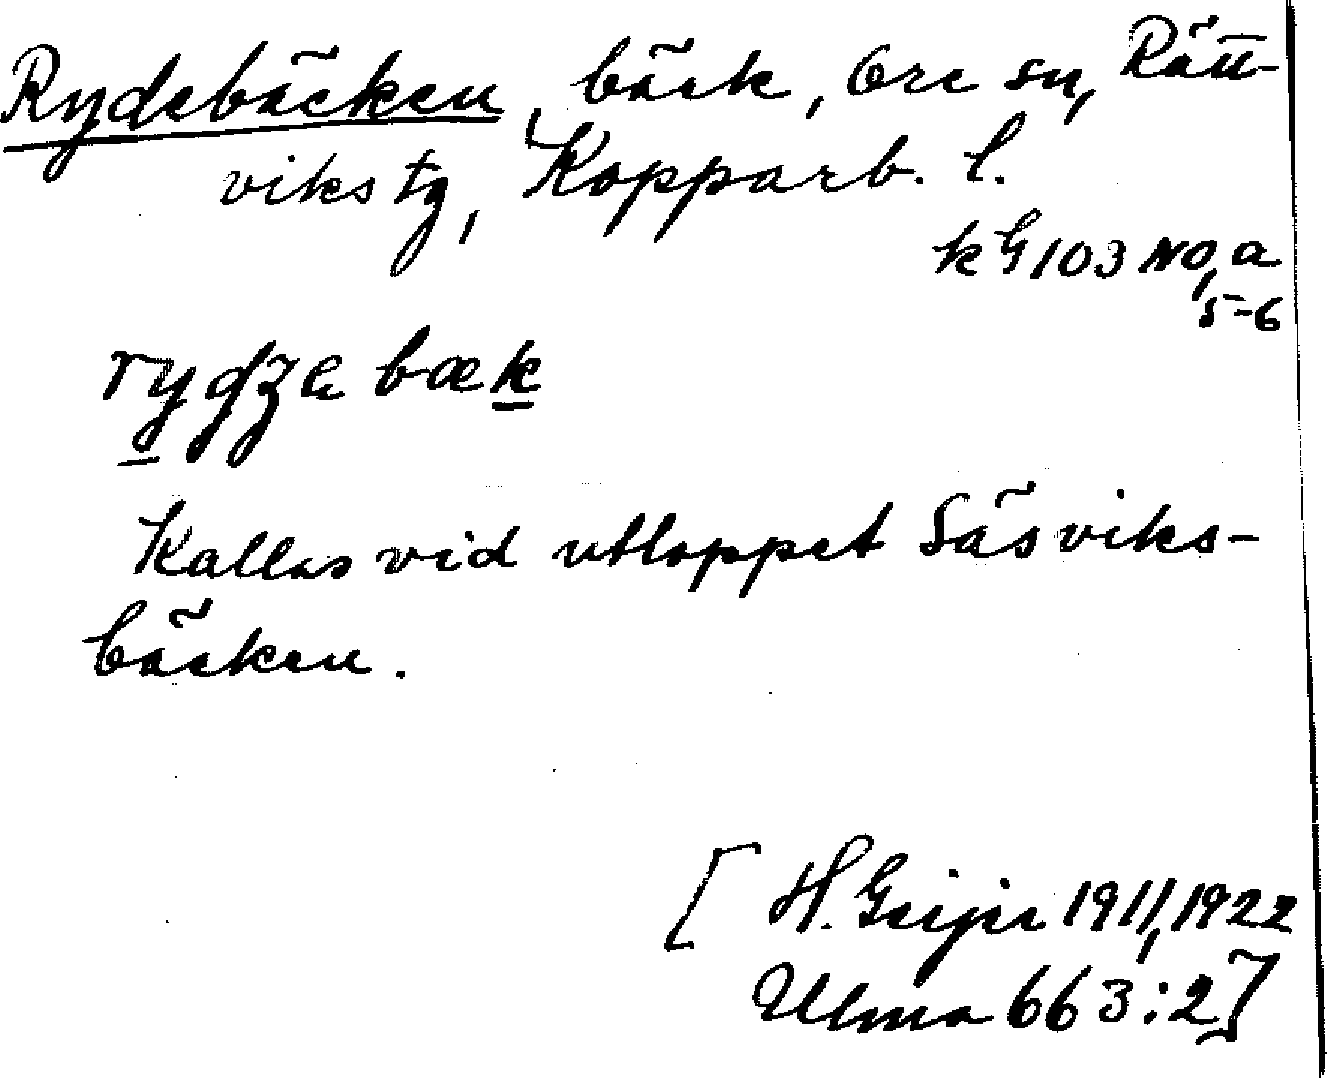 Rydebäcken, bäck, Ore sn, Rätt-
viks tg, Kopparb. l.
kG 103 NO, a
5-6
rydʒe bæk
Kallas vid utloppet Säsviks-
bäcken.
[H. Geijer 1911, 1922
Ulma 663:2]